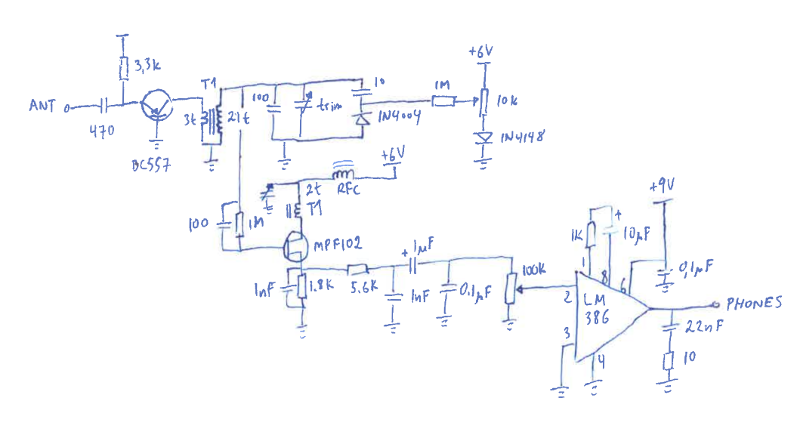 3,3k
ANT
470
BC557
T1
3t
21t
100
trim
10
1N4004
1M
+6V
10k
1N4148
+6V
RFC
2t
T1
100
1M
MPF102
1nF
1.8K
5.6K
+ 1µF
1nF
0.1µF
100k
1K
+
10µF
+9V
0,1µF
1
8
6
2
LM
386
3
4
PHONES
22nF
10